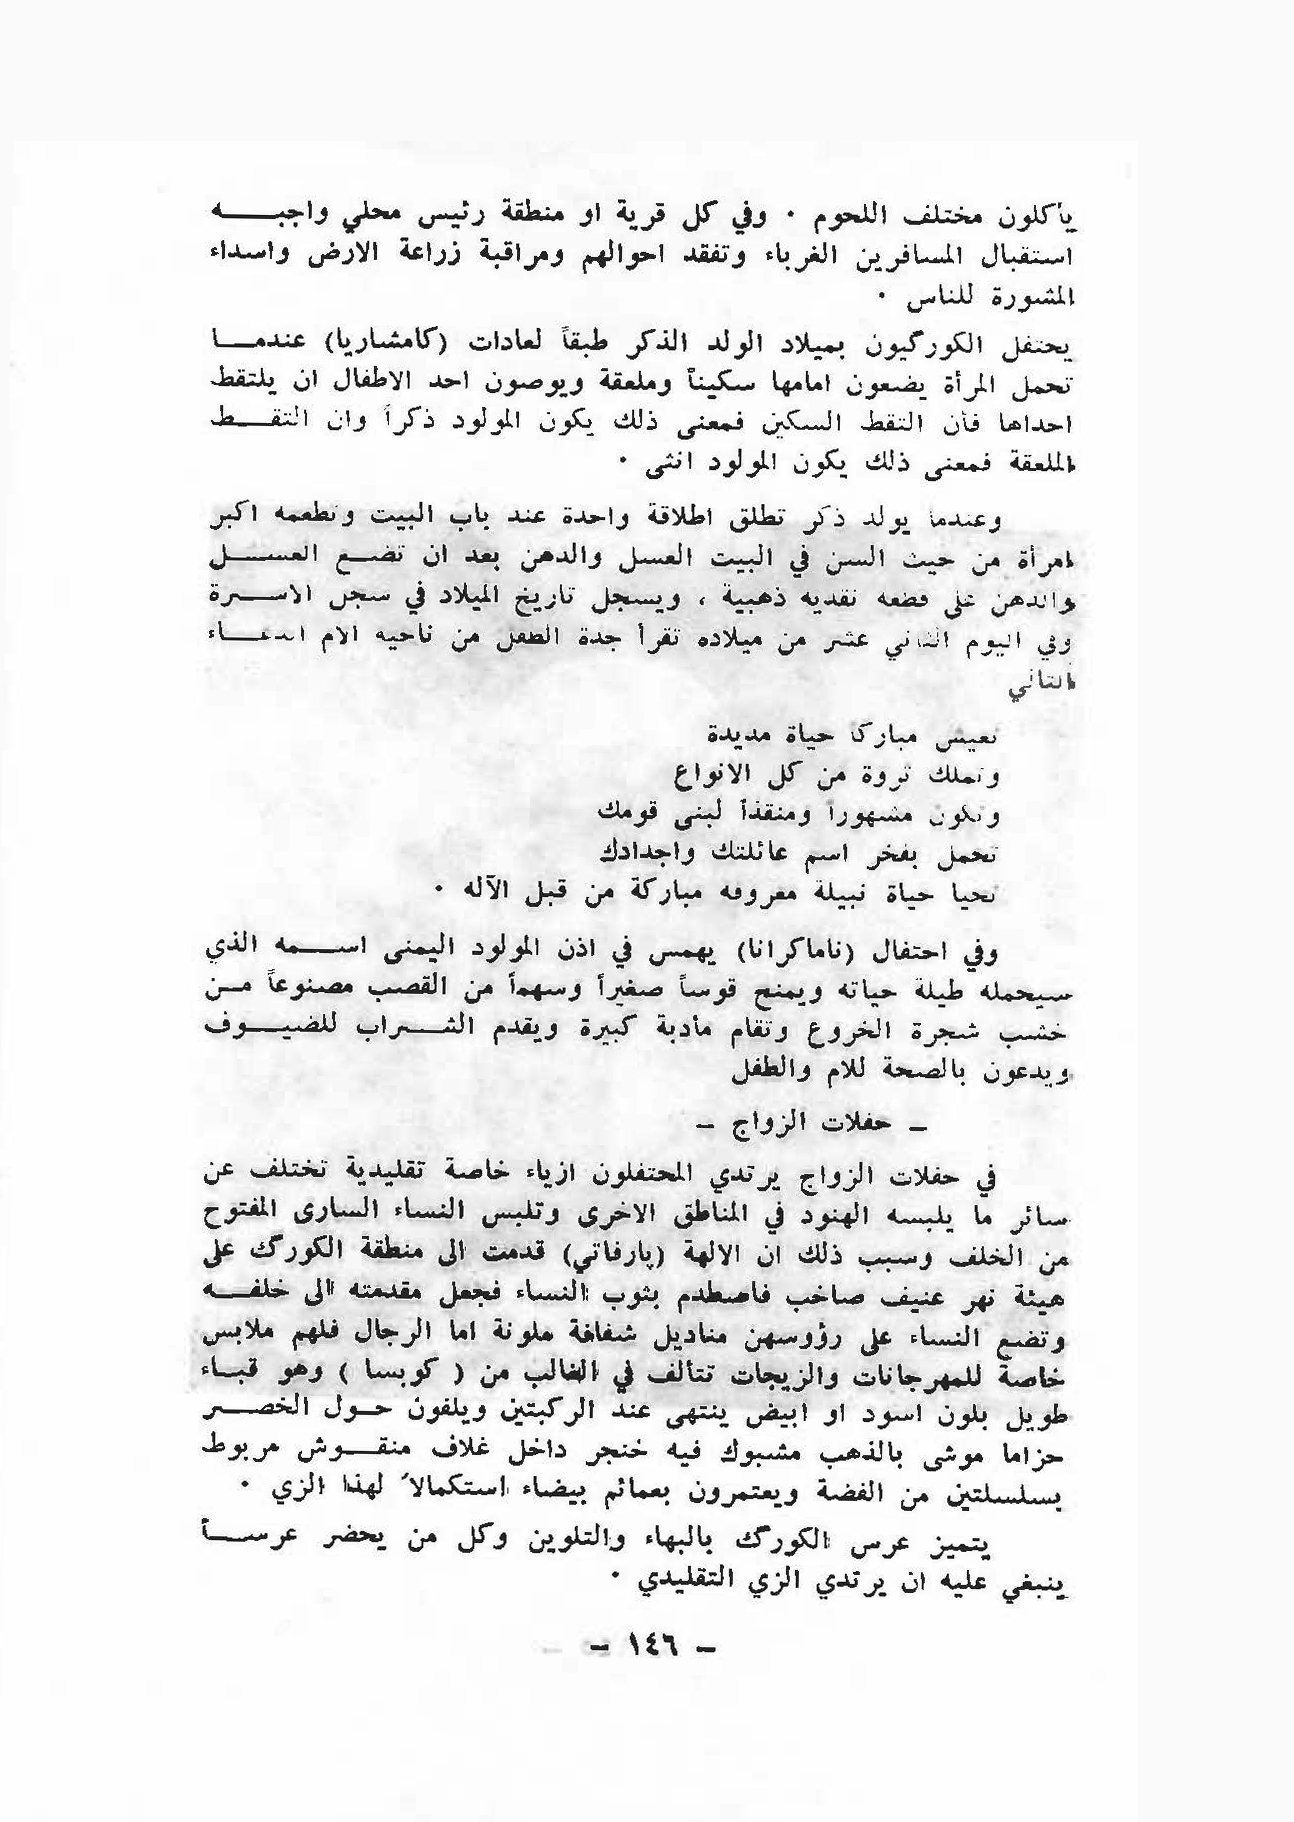 يأكلون مختلف اللحوم . وفي كل قرية او منطقة رئيس محلي واجبه
استقبال المسافرين الغرباء وتفقد احوالهم ومراقبة زراعة الارض واسداء
المشورة للناس .
يحتفل الكورگيون بميلاد الولد الذكر طبقاً لعادات (كامشاريا) عندما
تحمل المرأة يضعون امامها سكيناً وملعقة ويوصون احد الاطفال ان يلتقط
احداها فأن التقط السكين فمعنى ذلك يكون المولود ذكراً وان التقط
الملعقة فمعنى ذلك يكون المولود انثى .
وعندما يولد ذكر تطلق اطلاقة واحدة عند باب البيت وتطعمه اكبر
امرأة من حيث السن في البيت العسل والدهن بعد ان تضع العسل
والدهن على قطعه نقديه ذهبية ، ويسجل تاريخ الميلاد في سجل الاسرة
وفي اليوم الثاني عشر من ميلاده تقرأ جدة الطفل من ناحيه الام الدعاء
التالي
تعيش مباركا حياة مديدة
وتملك ثروة من كل الانواع
وتكون مشهوراً ومنقذاً لبنى قومك
تحمل بفخر اسم عائلتك واجدادك
تحيا حياة نبيلة معروفه مباركة من قبل الآله .
وفي احتفال (ناماكرانا) يهمس في اذن المولود اليمنى اسمه الذي
سيحمله طيلة حياته ويمنح قوساً صغيراً وسهماً من القصب مصنوعاً من
خشب شجرة الخروع وتقام مأدبة كبيرة ويقدم الشراب للضيوف
ويدعون بالصحة للام والطفل
– حفلات الزواج –
في حفلات الزواج يرتدي المحتفلون ازياء خاصة تقليدية تختلف عن
سائر ما يلبسه الهنود في المناطق الاخرى وتلبس النساء السارى المفتوح
من الخلف وسبب ذلك ان الالهة (پارفاتي) قدمت الى منطقة الكورگ على
هيئة نهر عنيف صاخب فاصطدم بثوب النساء فجعل مقدمته الى خلفه
وتضع النساء على رؤوسهن مناديل شفافة ملونة اما الرجال فلهم ملابس
خاصة للمهرجانات والزيجات تتألف في الغالب من ( كوبسا ) وهو قباء
طويل بلون اسود او ابيض ينتهى عند الركبتين ويلفون حول الخصر
حزاما موشى بالذهب مشبوك فيه خنجر داخل غلاف منقوش مربوط
بسلسلتين من الفضة ويعتمرون بعمائم بيضاء استكمالاً لهذا الزي .
يتميز عرس الكورگ بالبهاء والتلوين وكل من يحضر عرساً
ينبغي عليه ان يرتدي الزي التقليدي .
– ١٤٦ –